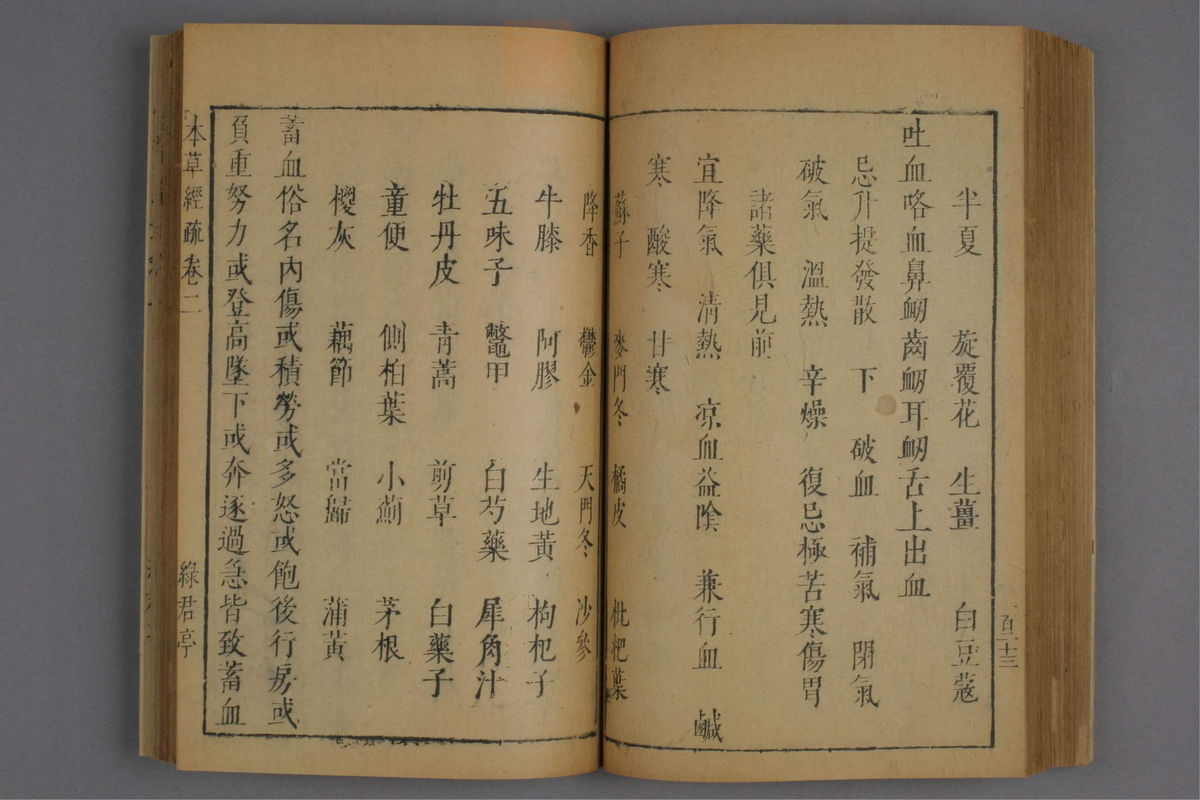 半夏　旋覆花　生薑　白豆蔻
吐血咯血鼻衂齒衂耳衂舌上出血
忌升提發散　下　破血　補氣　閉氣
破氣　溫熱　辛燥　復忌極苦寒傷胃
諸藥俱見前
宜降氣　清熱　凉血益隂　兼行血　鹹
寒　酸寒　甘寒
蘇子　麥門冬　橘皮　枇杷葉
降香　鬱金　天門冬　沙參
牛膝　阿膠　生地黃　枸杞子
五味子　鼈甲　白芍藥　犀角汁
牡丹皮　青蒿　剪草　白藥子
童便　側柏葉　小薊　茅根
椶灰　藕節　當歸　蒲黃
蓄血俗名內傷或積勞或多怒或飽後行房或
負重努力或登高墜下或奔逐過急皆致蓄血
本草經疏　卷二　綠君亭
百二十三